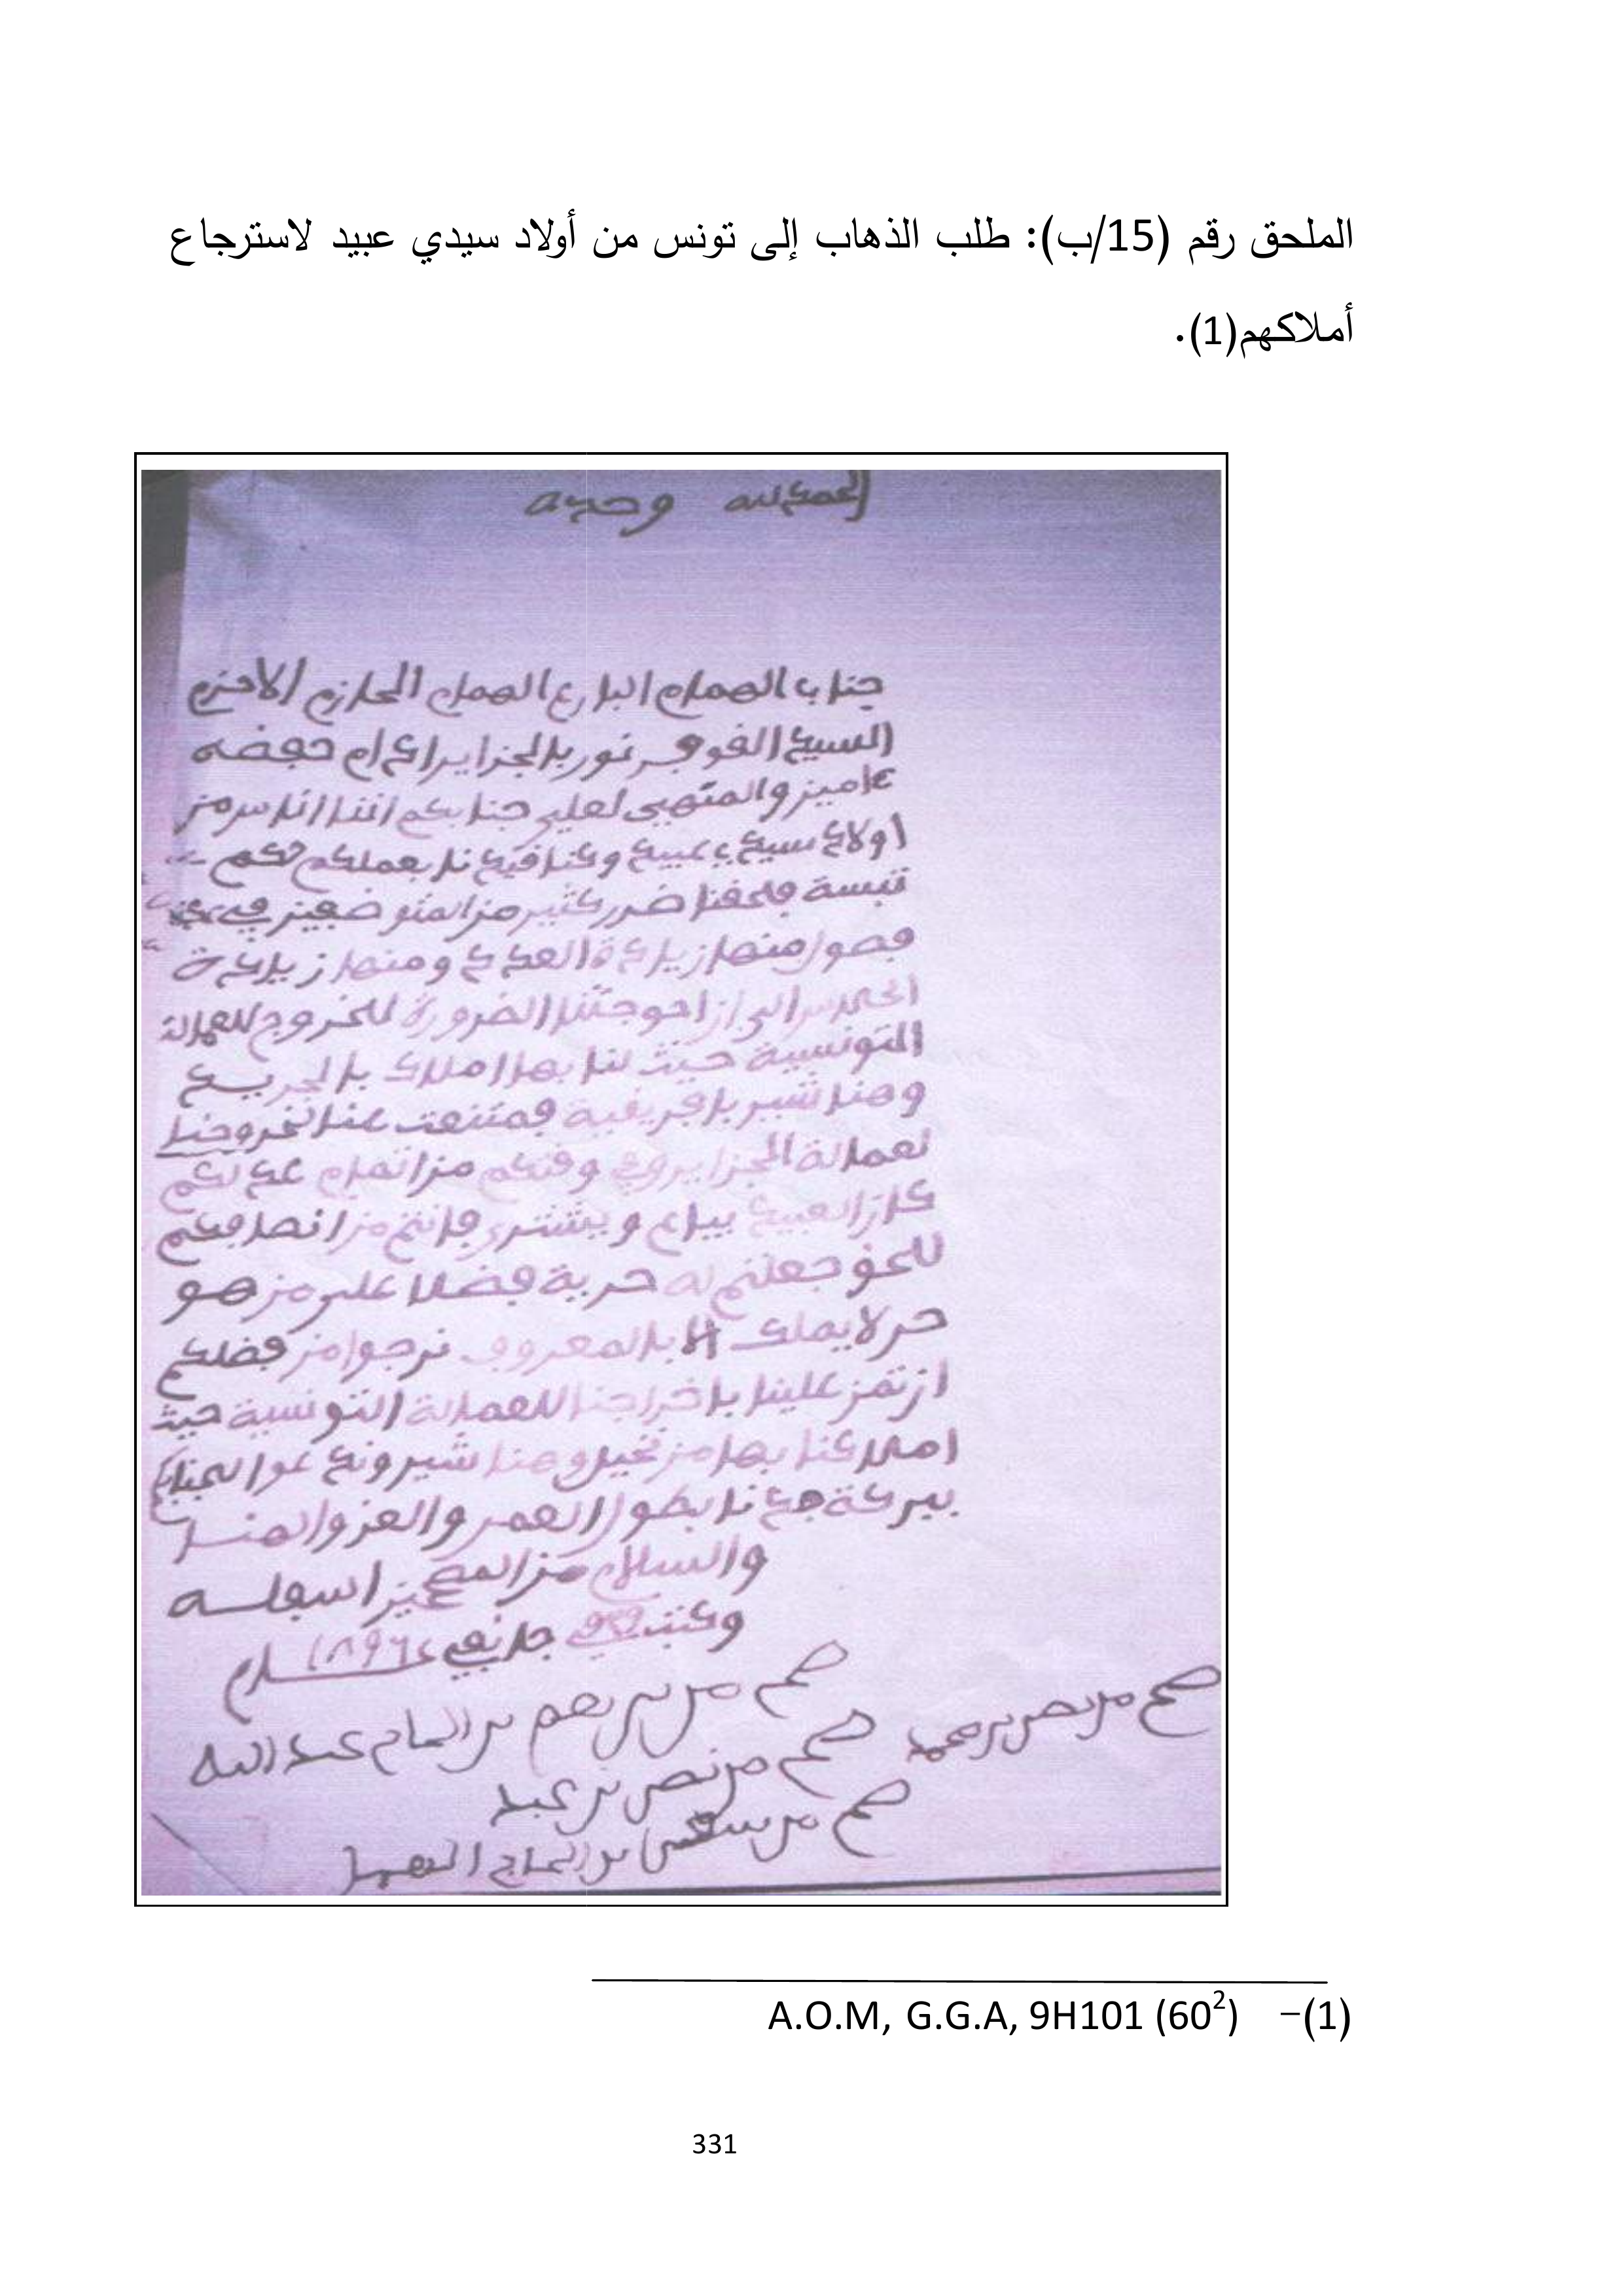 الملحق رقم (15/ب): طلب الذهاب إلى تونس من أولاد سيدي عبيد لاسترجاع
أملاكهم(1).
الحمد لله وحده
جناب الهمام البارع الهمام الحازم الاحزم
السيد القوفرنور بالجزاير ادام حفضه
ءامين والمنهى لعلي جنابكم اننا اناس من
اولاد سيدي عبيد وكنا قيدنا بعملكم
تبسة فلحقنا ضرر كثير من المتوضفين في
فصول منها زيادة العدد ومنها زيادة
الى ان احوجتنا الضرورة للخروج للعمالة
التونسية حيث لنا بها املاك بالجريد
وهناشير بافريقية فمتنعت عنا لخروجنا
لعمالة الجزاير وفي وقتكم من اتمام عدلكم
كان العبيد يباع ويشترى فانتم من انصافكم
للحق جعلتم له حرية فضلا على من هو
حر لا يملك الا بالمعروف نرجوا من فضلكم
ان تمن علينا باخراجنا للعمالة التونسية حيث
املاكنا بها من نخيل وهناشير وندعوا لجنابكم
ببركة جدنا بطول العمر والعز والهنا
والسلام من اسفله
وكتب في جانفي 1896
صح من نصر بن محمد
صح من بن الحاج عبد الله
صح من نصر بن عبيد
صح من بن الحاج
(1)– A.O.M, G.G.A, 9H101 (60²)
331